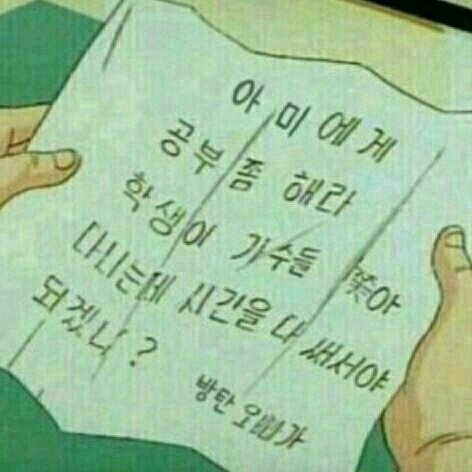 아미에게
공부 좀 해라
학생이 가수들 쫓아
다니는데 시간을 다 써서야
되겠니?
방탄 오빠가